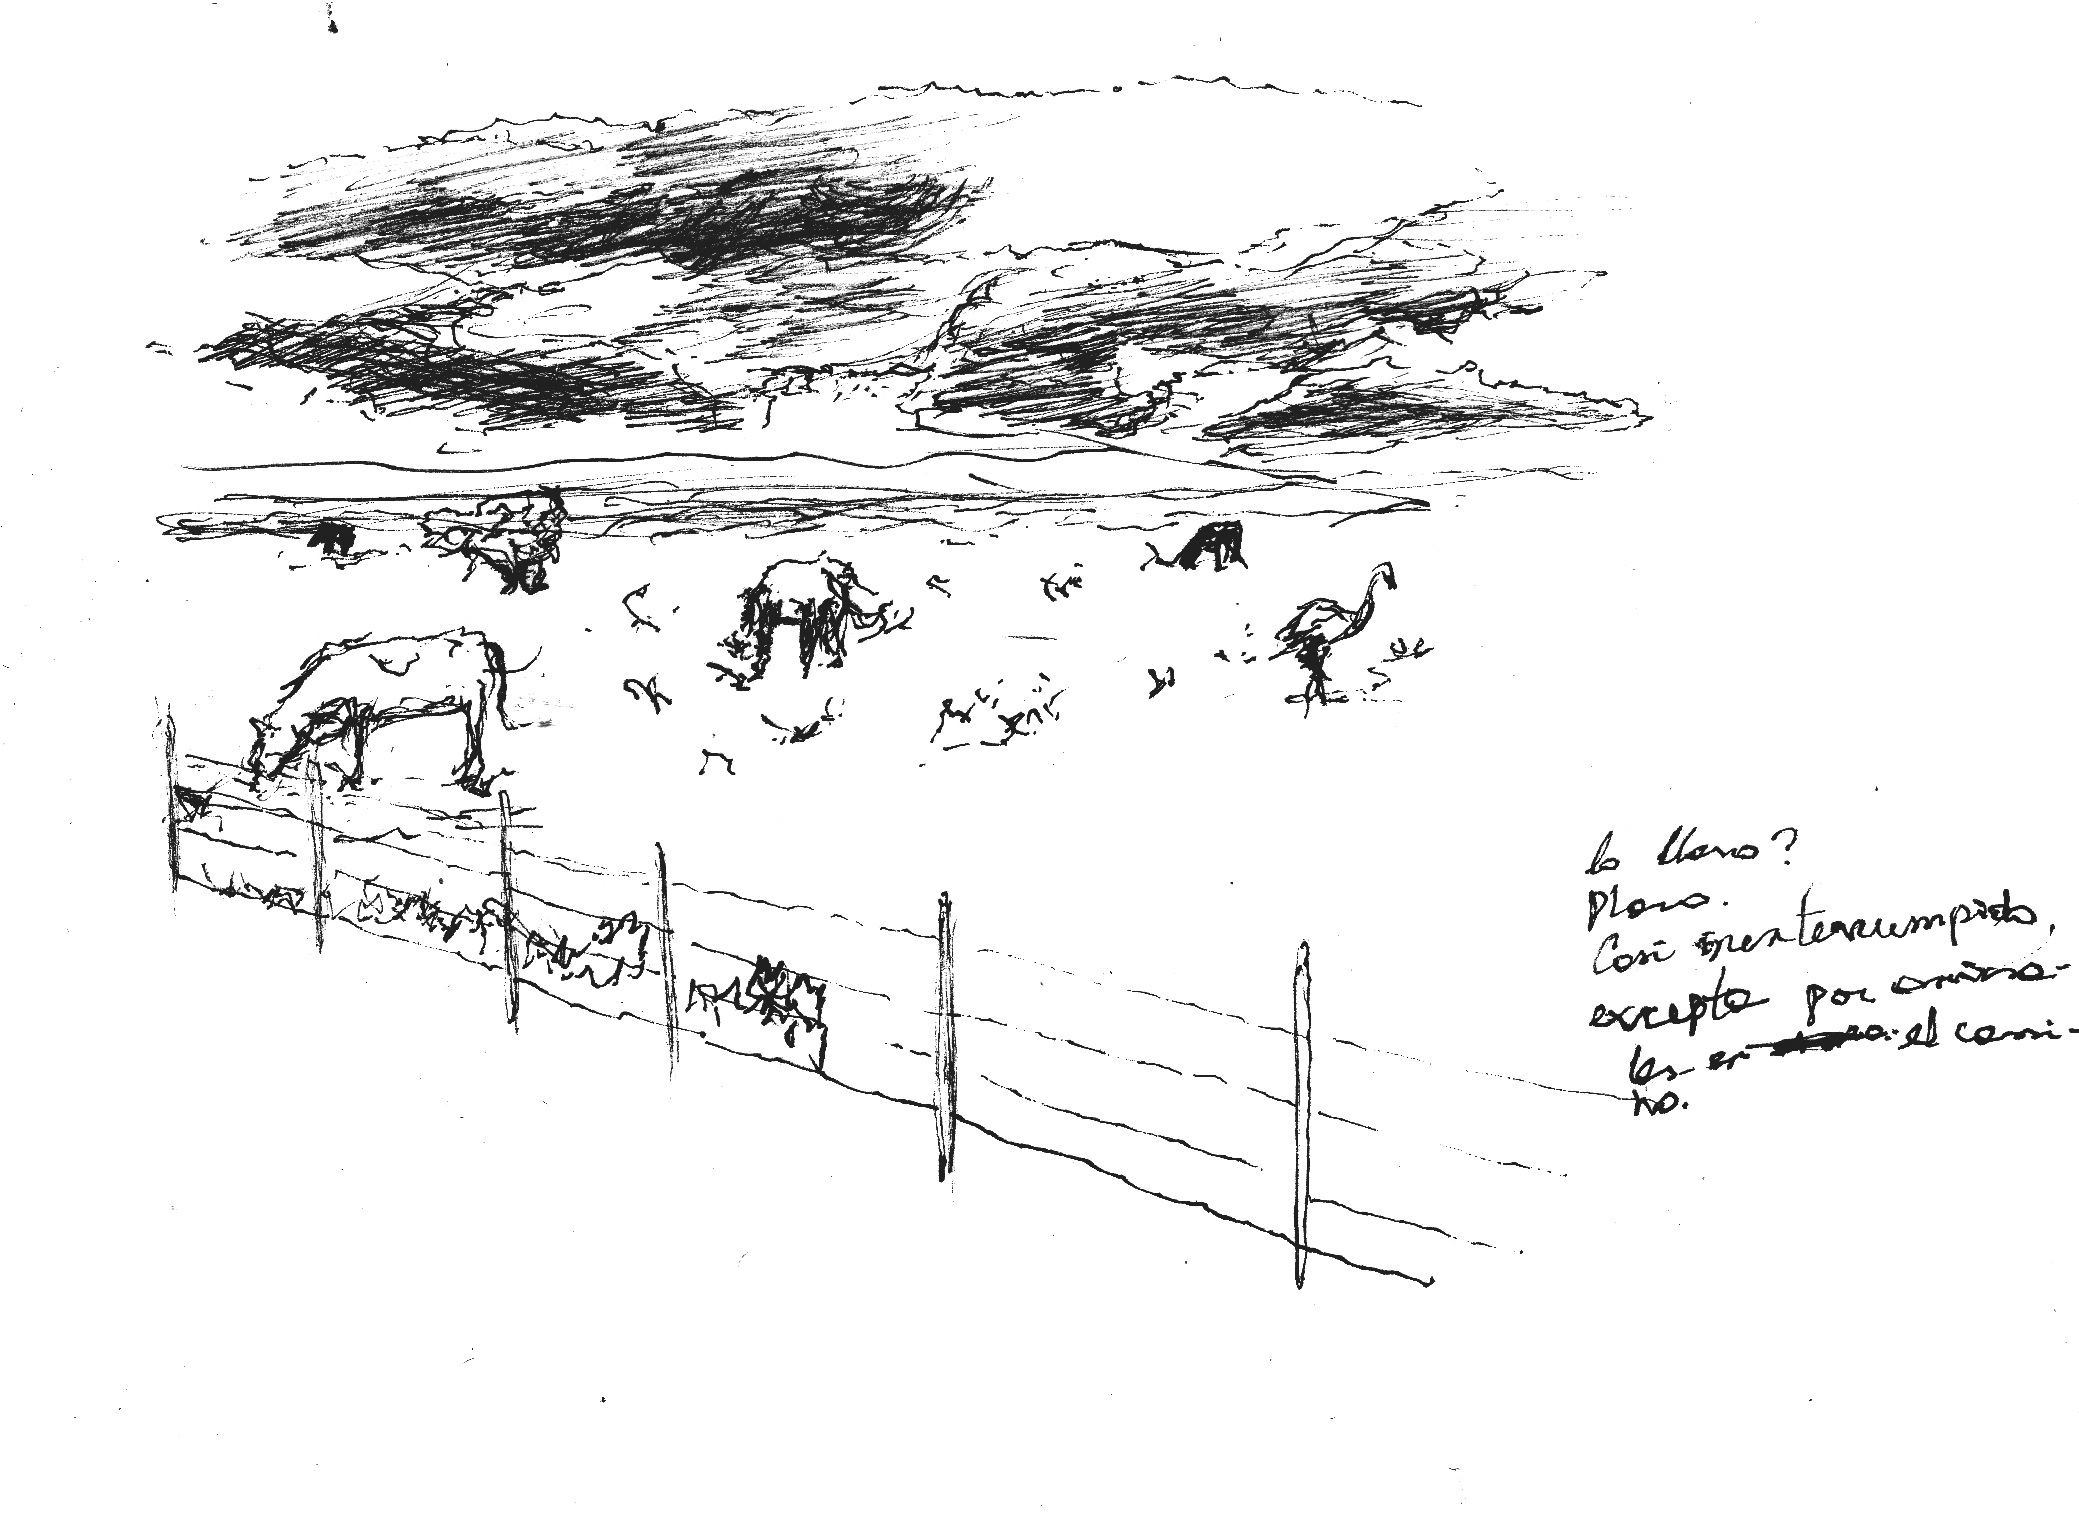 lo llano?
Plano.
Casi inenterrumpido,
excepto por anima-
les en el cami-
no.